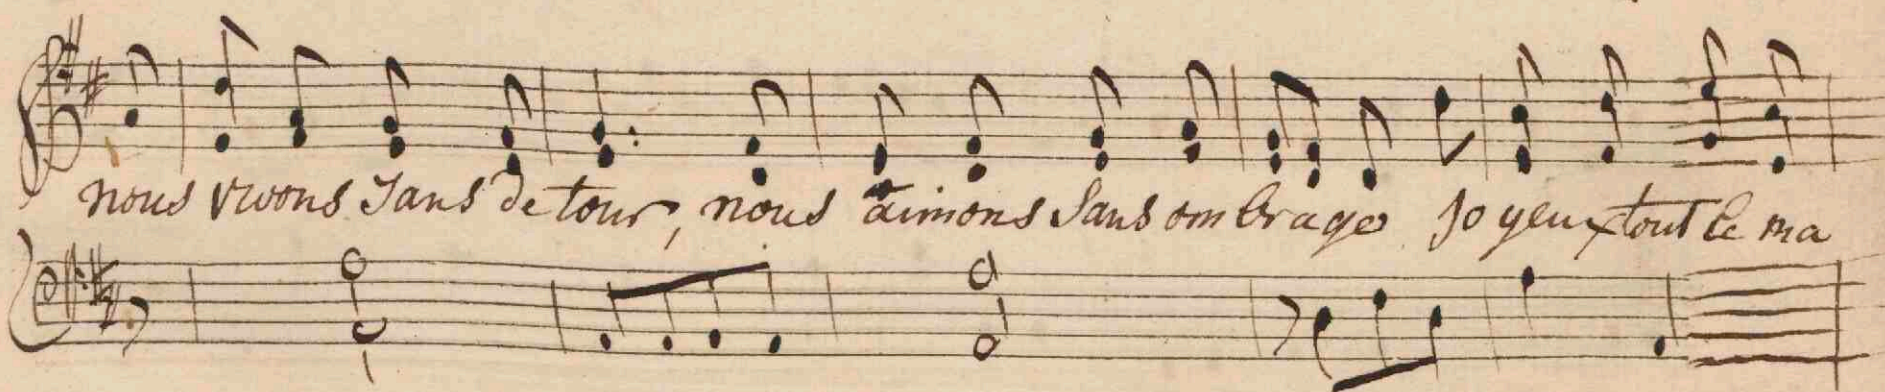 nous vivons sans de tour, nous aimons sans om brage jo yeux tout le ma